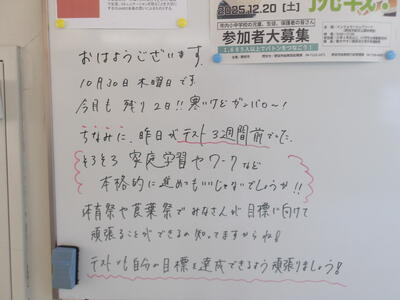 2025.12.20 (土)
市内小中学校の児童、生徒、保護者の皆さん
参加者大募集
おはようございます。
10月30日木曜日です。
今月も残り2日!!寒いけどガンバロ〜!
ちなみに、昨日がテスト3週間前でした。
そろそろ家庭学習やワークなど
本格的に進めてもいいじゃないでしょうか!!
体育祭や蔦葉祭でみなさんが目標に向けて
頑張ることができるの知ってますからね!
テストでも自分の目標を達成できるよう頑張りましょう!